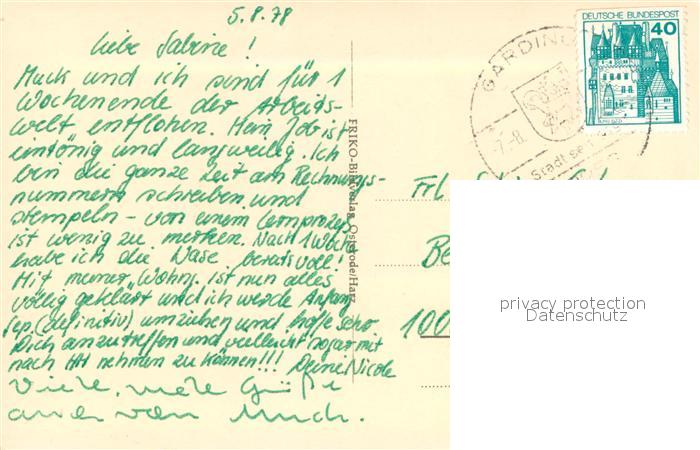 5.8.78
liebe Sabine!
Muck und ich sind für 1
Wochenende der Arbeits-
welt entflohen. Mein Job ist
eintönig und langweilig. Ich
bin die ganze Zeit am Rechnungs-
nummern schreiben und
stempeln - von einem Lernprozeß
ist wenig zu merken. Nach 1 Woche
habe ich die Nase bereits voll!
Mit meiner Wohng. ist nun alles
völlig geklärt und ich werde Anfang
Sep. (definitiv) umziehen und hoffe sehr
Dich anzutreffen und vielleicht sogar mit
nach HH nehmen zu können!!! Deine Nicole
Viele, viele Grüße
auch von Muck.
FRIKO-Bildverlag Osterode/Harz
DEUTSCHE BUNDESPOST
40
GARDING
-7.-8.
Stadt seit
Frl.
Be
100
privacy protection
Datenschutz